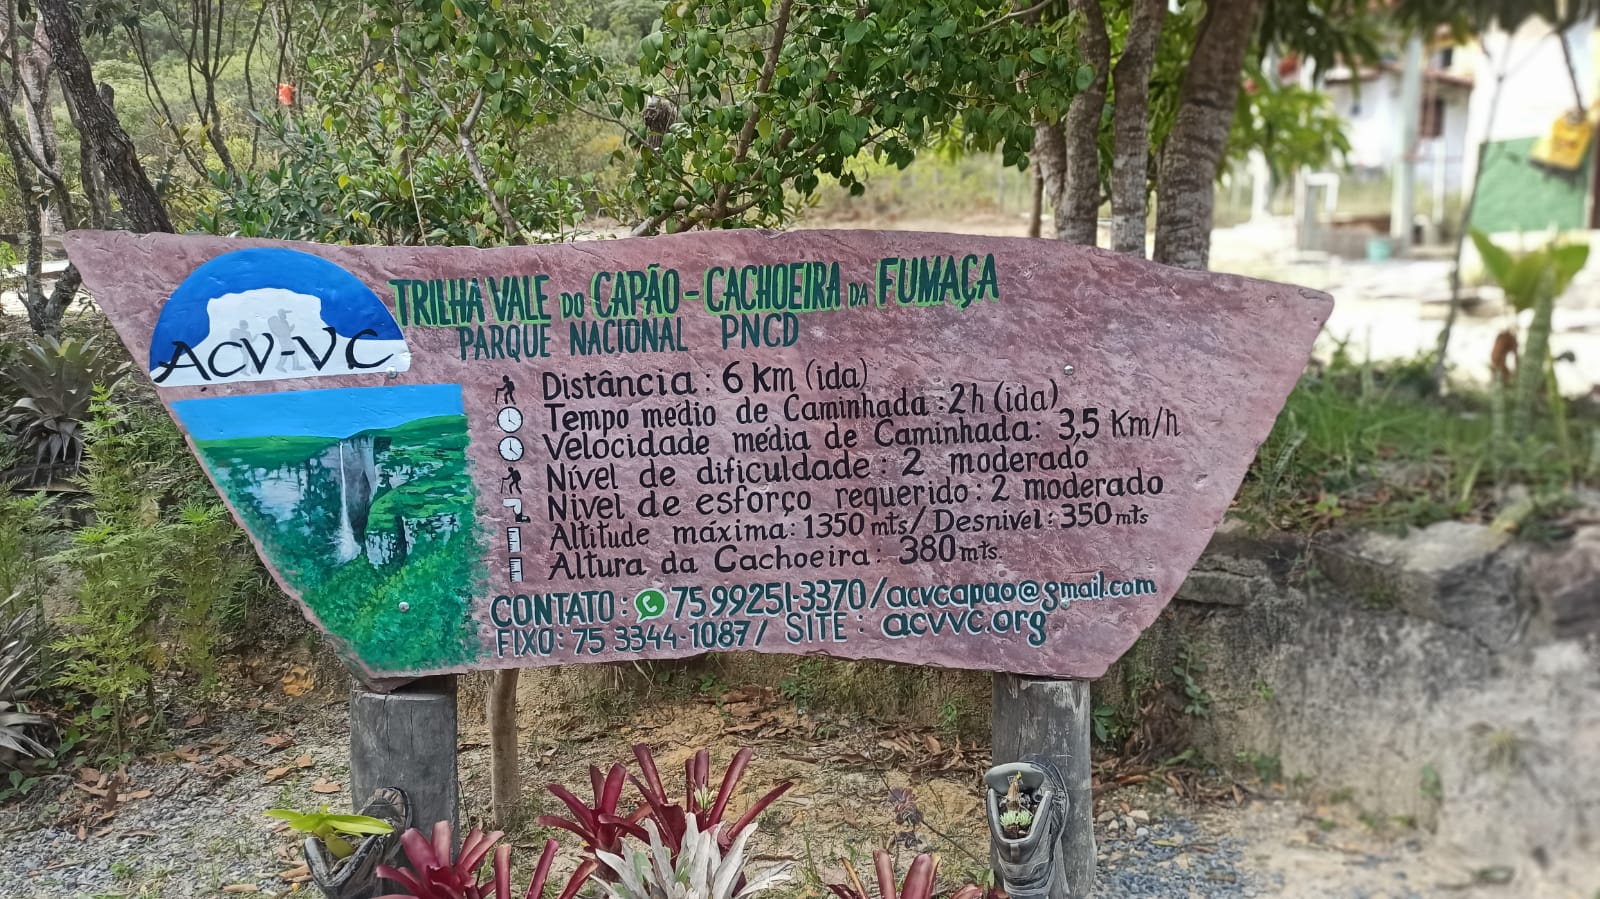 ACV-VC
TRILHA VALE DO CAPÃO - CACHOEIRA DA FUMAÇA
PARQUE NACIONAL PNCD
Distância: 6 Km (ida)
Tempo médio de Caminhada: 2h (ida)
Velocidade média de Caminhada: 3,5 Km/h
Nível de dificuldade: 2 moderado
Nivel de esforço requerido: 2 moderado
Altitude máxima: 1350 mts/ Desnivel: 350 mts
Altura da Cachoeira: 380 mts.
CONTATO: 75 99251-3370/acvcapao@gmail.com
FIXO: 75 3344-1087/ SITE: acvvc.org